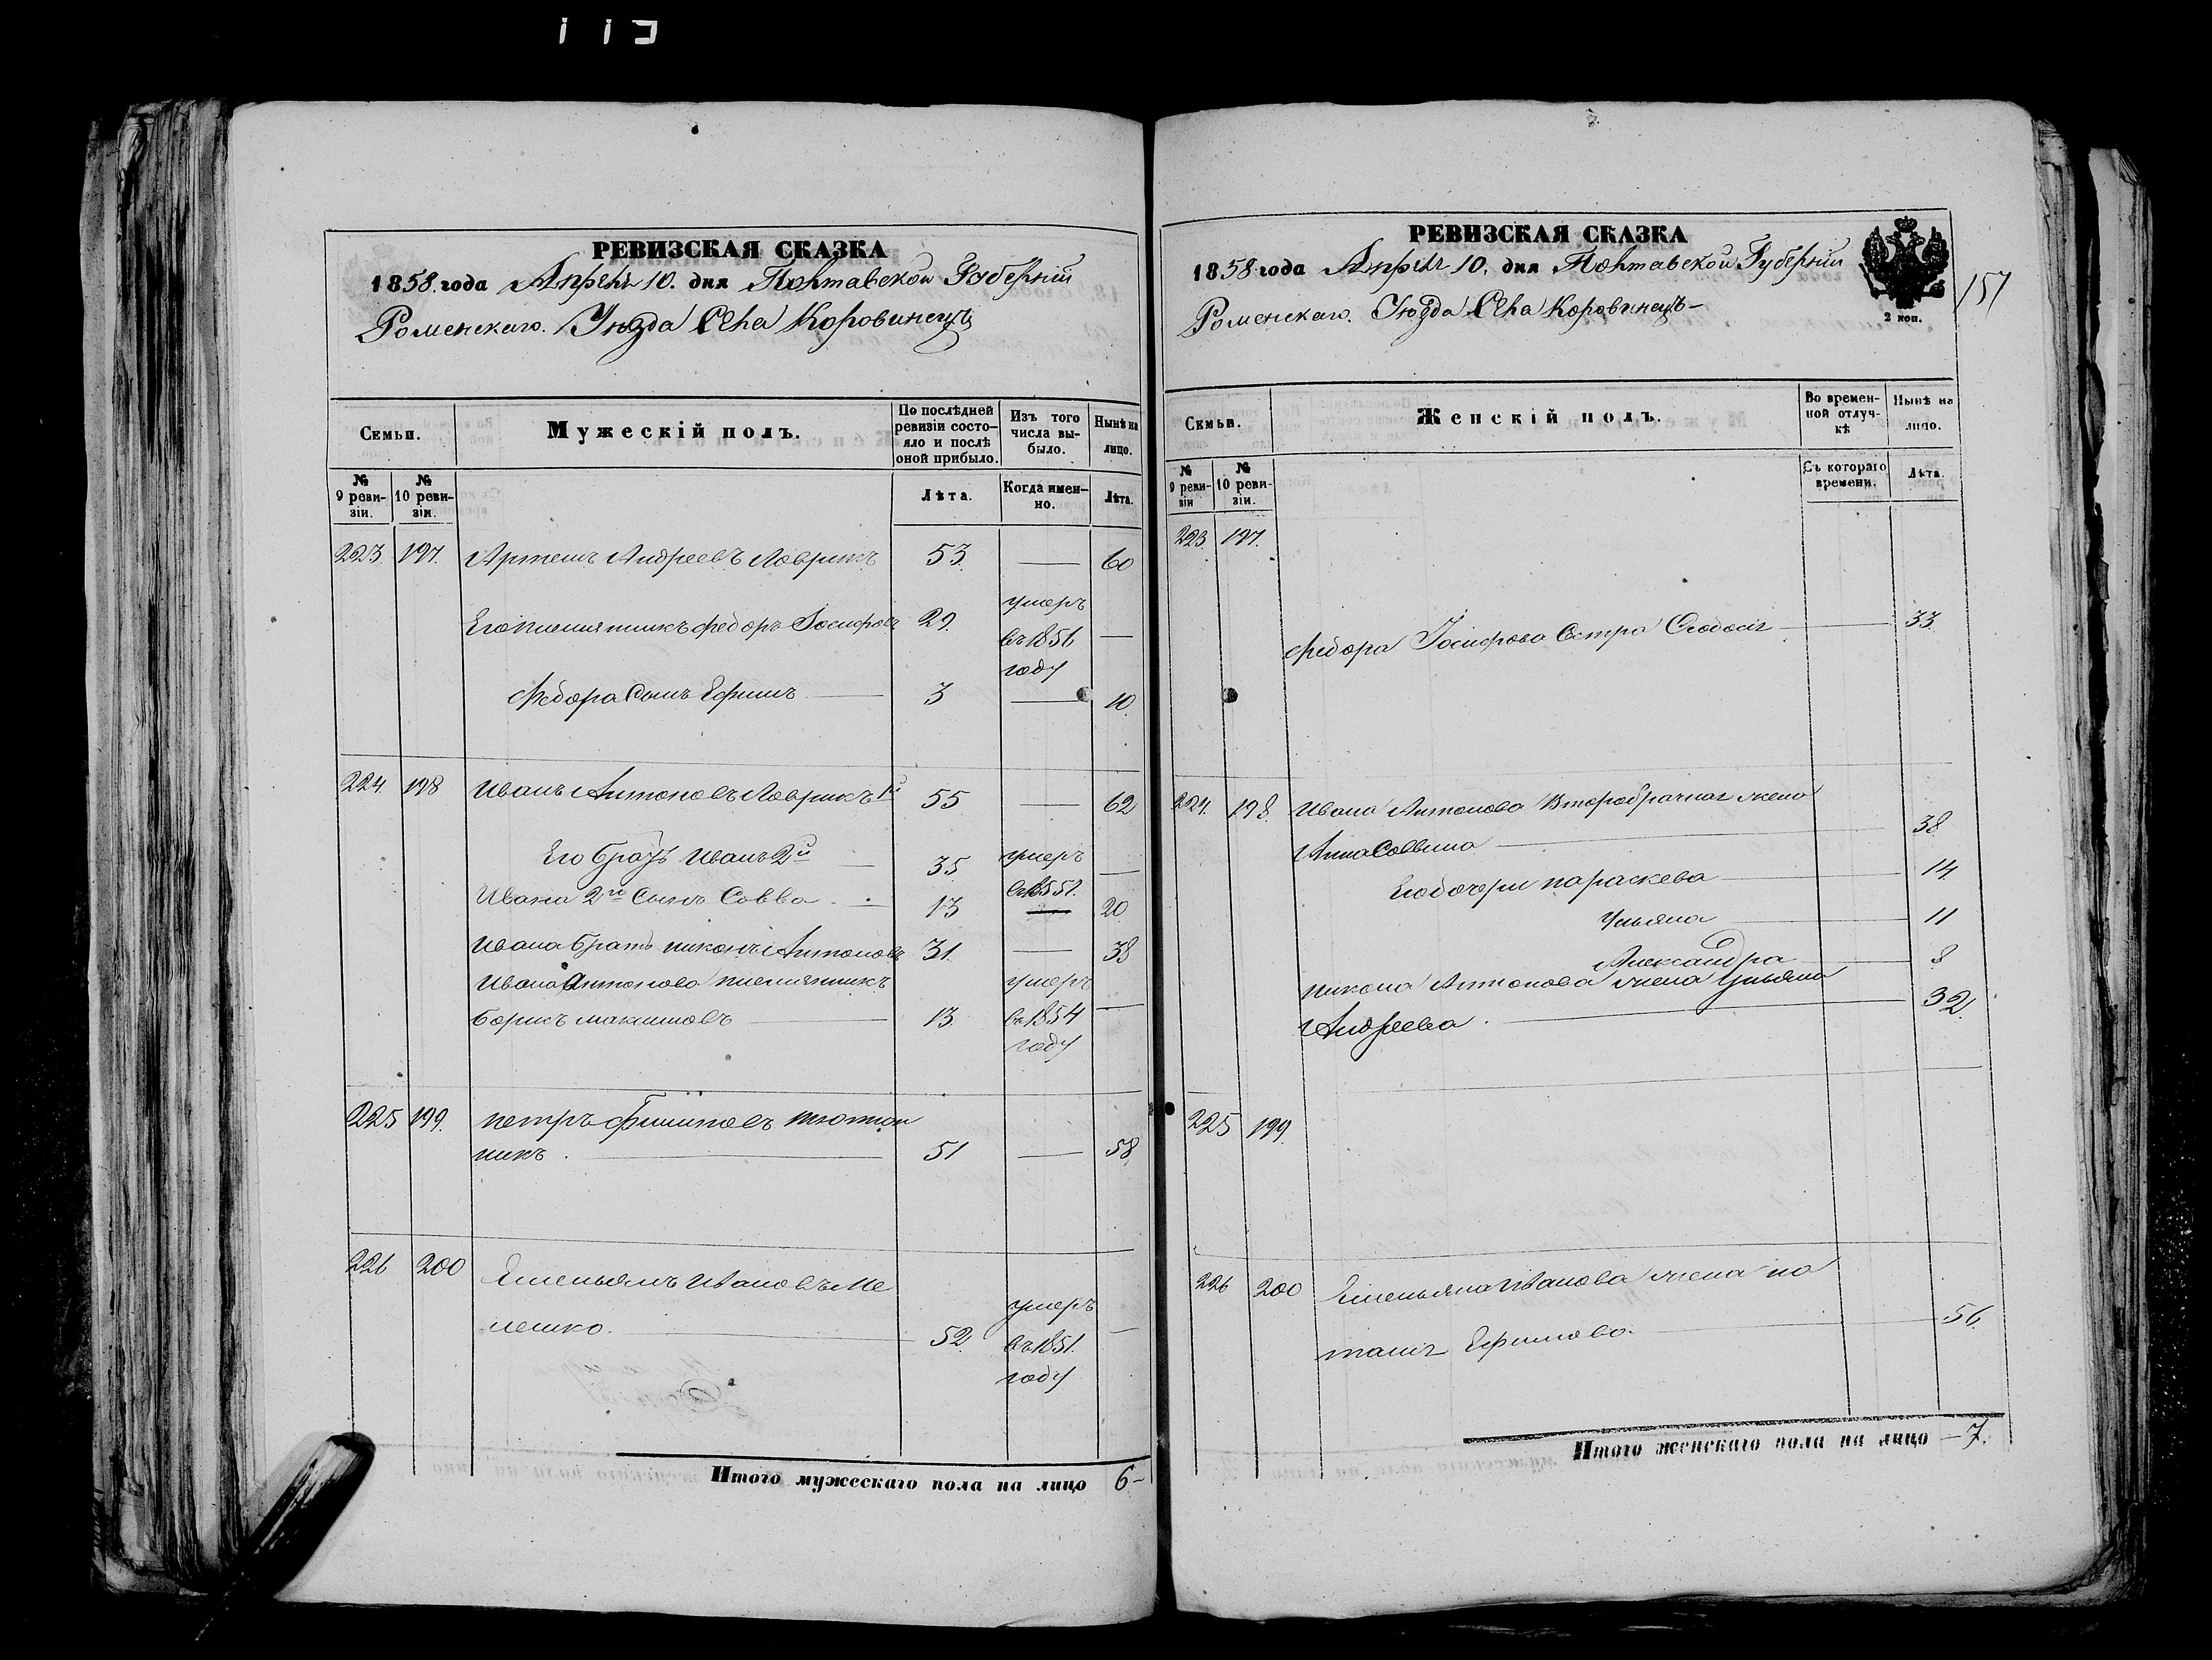 РЕВИЗСКАЯ СКАЗКА
1858 года Апреля 10. дня Полтавской Губерніи
Роменскаго. Уѣзда Села Коровинецъ
Семьи.
Мужескій полъ.
По послѣдней ревизіи состояло и послѣ оной прибыло.
Изъ того числа выбыло.
Нынѣ на лицо.
№ 9 ревизіи.
№ 10 ревизіи.
Лѣта.
Когда именно.
Лѣта.
223. 197. Артемъ Андреевъ Лаврикъ 53. — 60
Его племянникъ Федоръ Іосифовъ 29. умеръ въ 1856 году —
Федора Сынъ Ефимъ 3 — 10.
224 198 Иванъ Антоновъ Лаврикъ 1й 55 — 62
Его братъ Иванъ 2й 35 умеръ въ 1855 г. —
Ивана 2го Сынъ Савва 13 — 20
Ивана братъ Никонъ Антоновъ 31. — 38
Ивана Антонова племянникъ
Борисъ Максимовъ 13 умеръ въ 1854 году —
225 199. Петръ Филиповъ Плотни
никъ. 51 — 58
226 200 Емельянъ Ивановъ Ме
лешко. 52. умеръ въ 1851. году —
Итого мужескаго пола на лицо 6-
РЕВИЗСКАЯ СКАЗКА
1858 года Апреля 10. дня Полтавской Губерніи
Роменскаго. Уѣзда Села Коровинецъ-
2 коп.
157
Семьи.
Женскій полъ.
Во временной отлучкѣ
Нынѣ на лицо.
№ 9 ревизіи
№ 10 ревизіи.
Съ котораго времени.
Лѣта.
223. 197.
Федора Іосифова Сестра Феодосія — 33.
224. 198. Ивана Антонова Второбрачная жена
Анна Саввина 38.
Его дочери Параскева 14.
Ульяна 11
Александра 8
Никона Антонова жена Ульяна
Андреева. 32.
225 199.
226 200 Емельяна Иванова жена На
талія Ефимова. 56.
Итого женскаго пола на лицо —7.